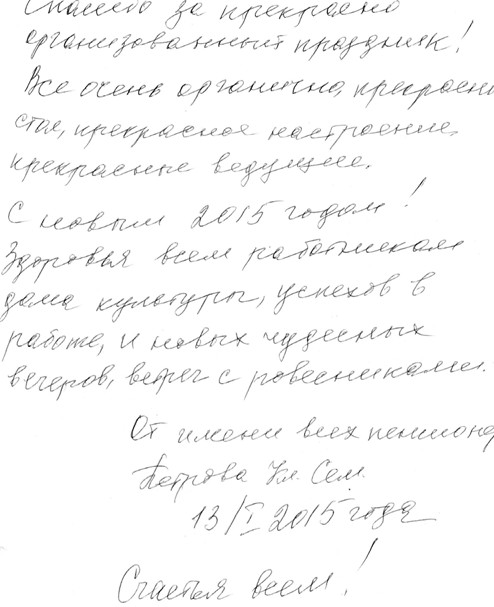 Спасибо за прекрасно
организованный праздник!
Все очень органично, прекрасны
стол, прекрасное настроение,
прекрасные ведущие.
С новым 2015 годом!
Здоровья всем работникам
дома культуры, успехов в
работе, и новых чудесных
вечеров, встреч с ровесниками.
От имени всех пенсионер
Петрова Кл. Сем.
13/I 2015 года
Счастья всем!